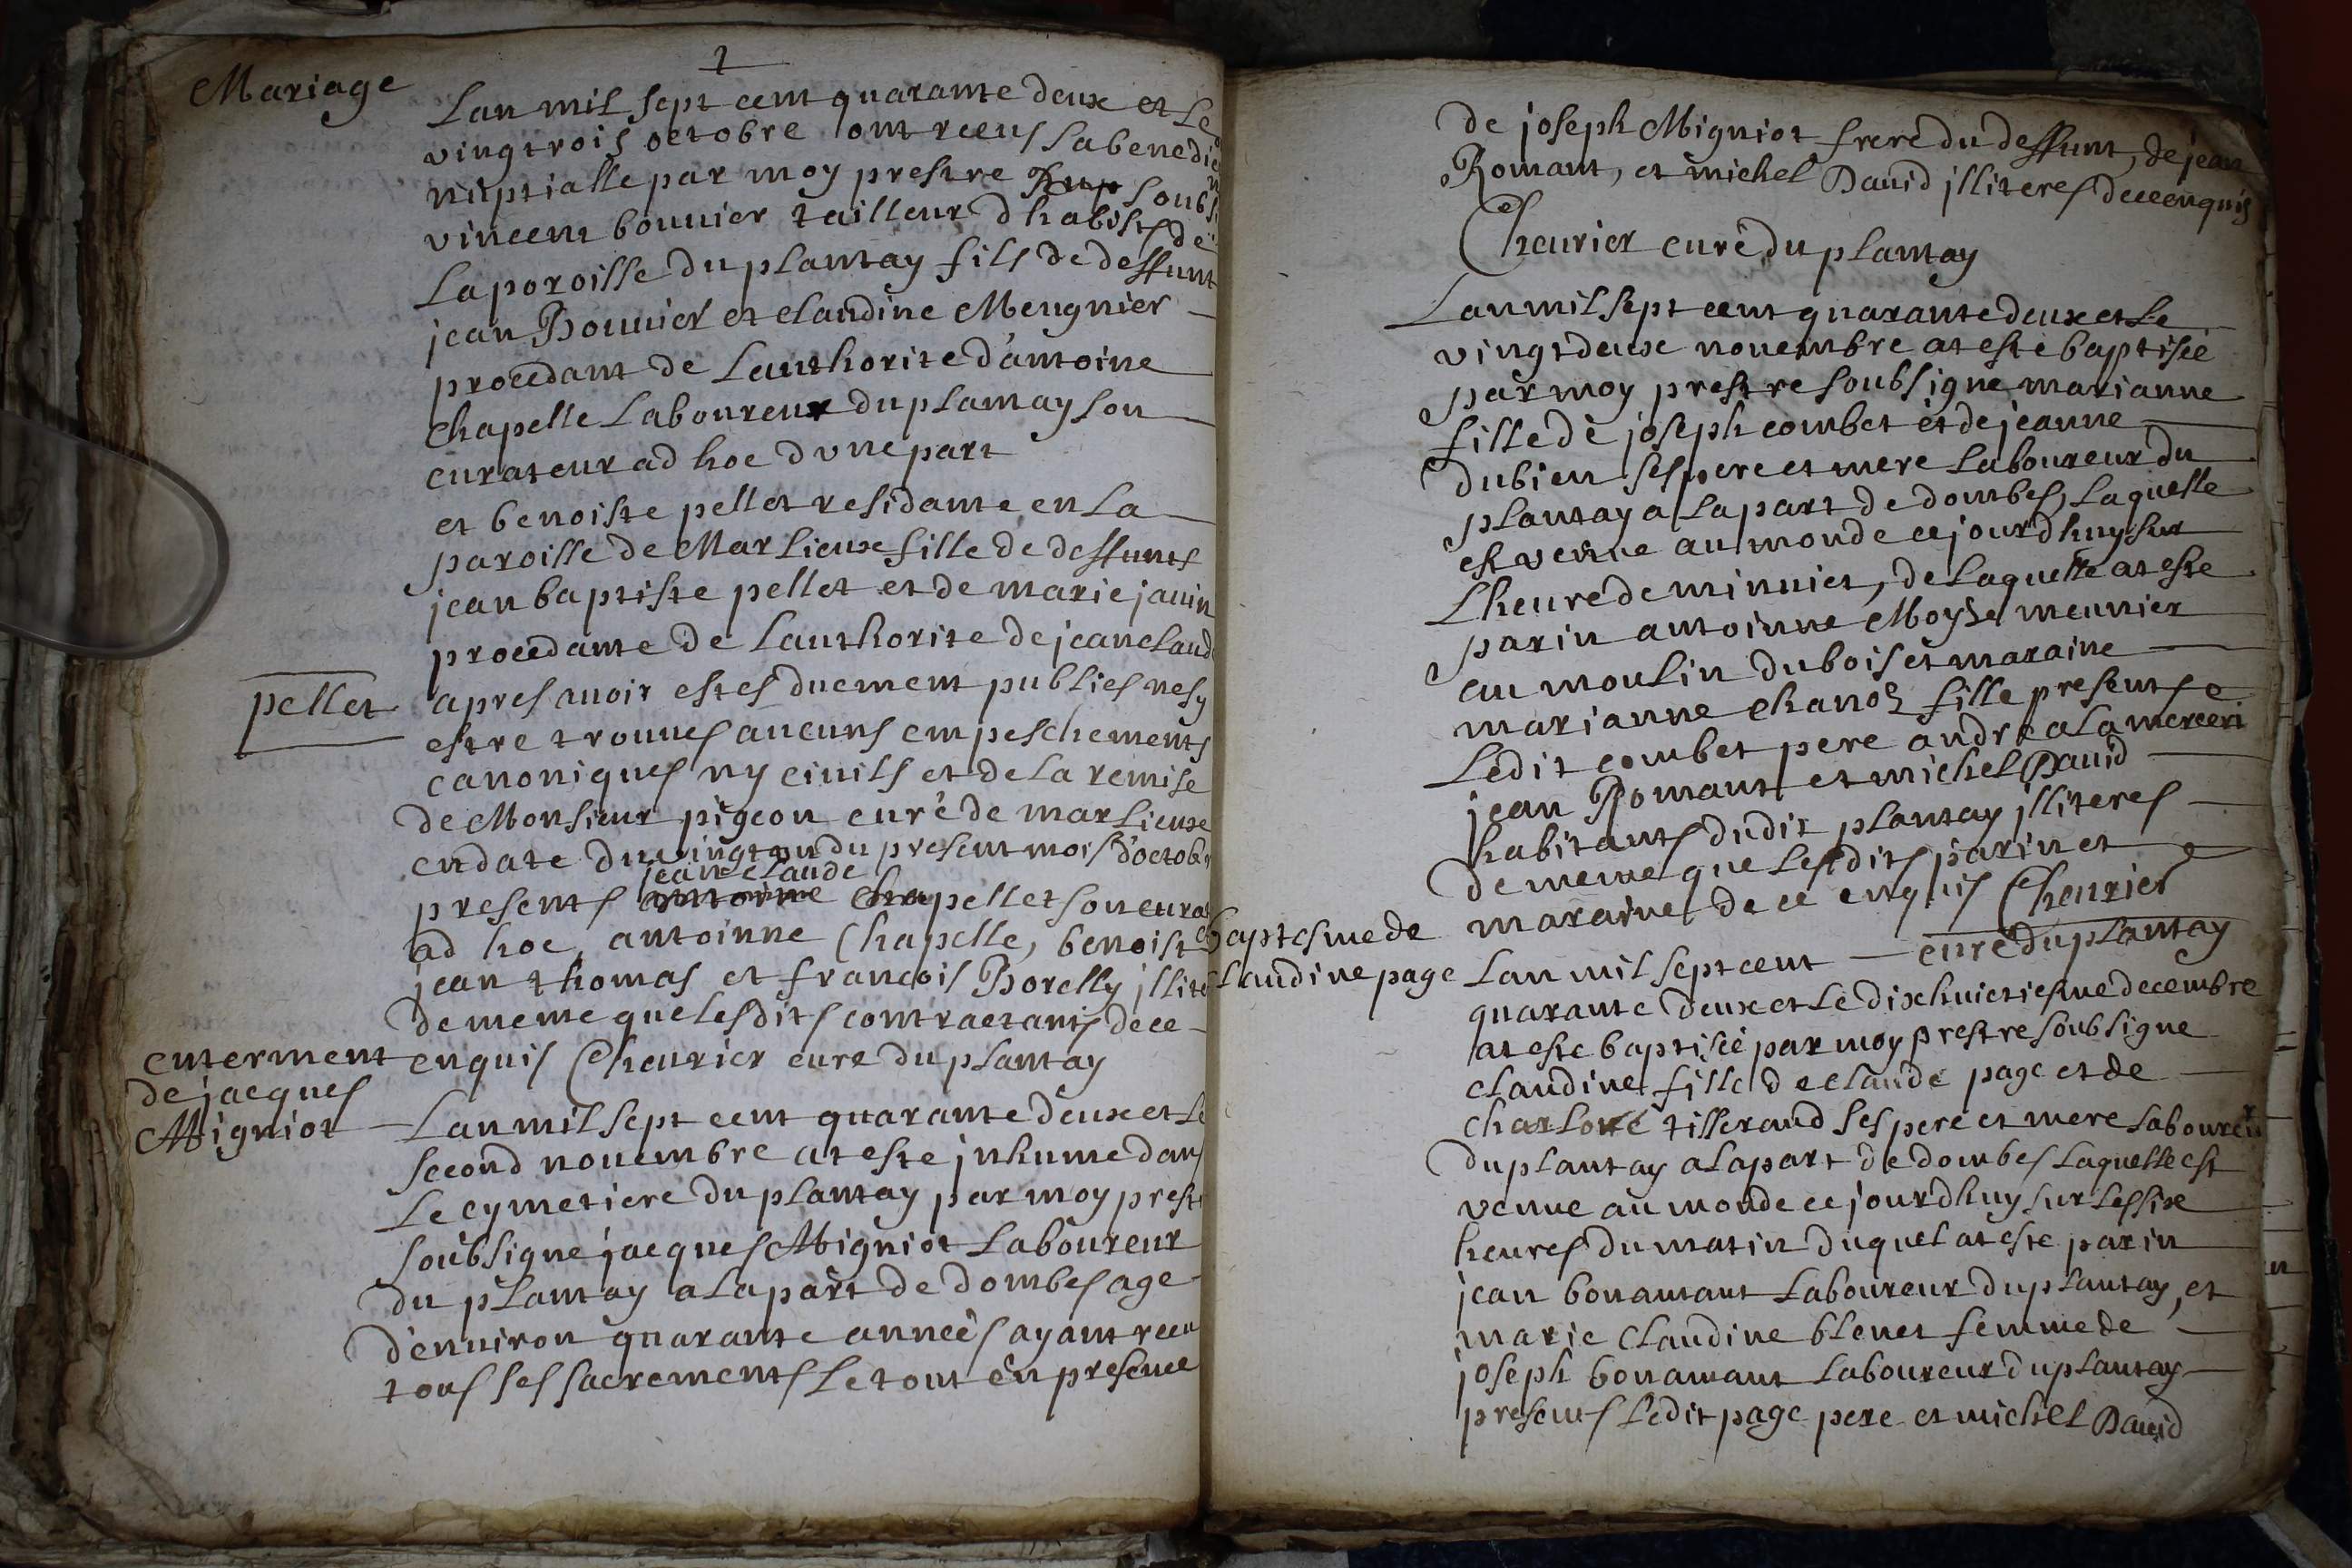 1
Mariage
Lan mil sept cent quarante deux et Le
vingtrois octobre ont receus La benedic
nuptialle par moy prestre soubs
vincent bouuier tailleur dhabists de
La poroisse du plantay fils de deffunt
jean Bouuier et claudine Meugnier
procedant de Lauthorite d'antoine
chapelle Laboureur du plantay son
curateur ad hoc dvne part
et benoiste pellet residante en La
paroisse de Marlieux fille de deffunts
jean baptiste pellet et de marie jauin
procedante de Lauthorite de jean claud
pellet
apres auoir estes duement publies nesy
estre trouues aucuns empeschements
canoniques ny ciuils et de La remise
de Monsieur pigeon curé de marlieux
en date du vingt un du present mois d'octob
jean claude
presents antoinne chapellet son cura
ad hoc, antoinne Chapelle, benoist
jean thomas et francois Borelly illite
de meme que lesdits contractants de ce
enquis Cheurier cure du plantay
enterment
de jacques
Migniot
Lan mil sept cent quarante deux et Le
second nouembre at este jnhume dans
Le cymetiere du plantay par moy prest
soubsigne jacques Migniot Laboureur
du plantay a La part de dombes age
d'enuiron quarante années ayant receu
tous ses sacrements Le tout en presence
de joseph Migniot frere du deffunt, de jean
Romant, et michel Dauid jlliteres de ce enquis
Cheurier curé du plantay
Lan mil sept cent quarante deux et Le
vingtdeux nouembre at esté baptisée
par moy prestre soubsigne marianne
fille de joseph combet et de jeanne
dubien ses pere et mere Laboureur du
plantay a La part de dombes, Laquelle
est venue au monde cejourdhuy sur
Lheure de minniet, de Laquelle at este
parin antoinne Moyse meunier
au moulin du bois et maraine
marianne chanos fille presents
Ledit combet pere andre a La merceri
jean Romant et michel Dauid
habitants dudit plantay jlliteres
de meme que Lesdits parin et
maraine de ce enquis Cheurier
curé du plantay
baptesme de
claudine page
Lan mil sept cent
quarante deux et Le dixhuictiesme decembre
at este baptisée par moy prestre soubsigne
claudine fille de claude page et de
charlote tillerand ses pere et mere Laboureur
du plantay a La part de dombes Laquelle est
venue au monde cejourdhuy sur Les six
heures du matin duquel at este parin
jean bonamant Laboureur du plantay, et
marie claudine blenet femme de
joseph bonamant Laboureur du plantay
presents Ledit page pere et michel Dauid